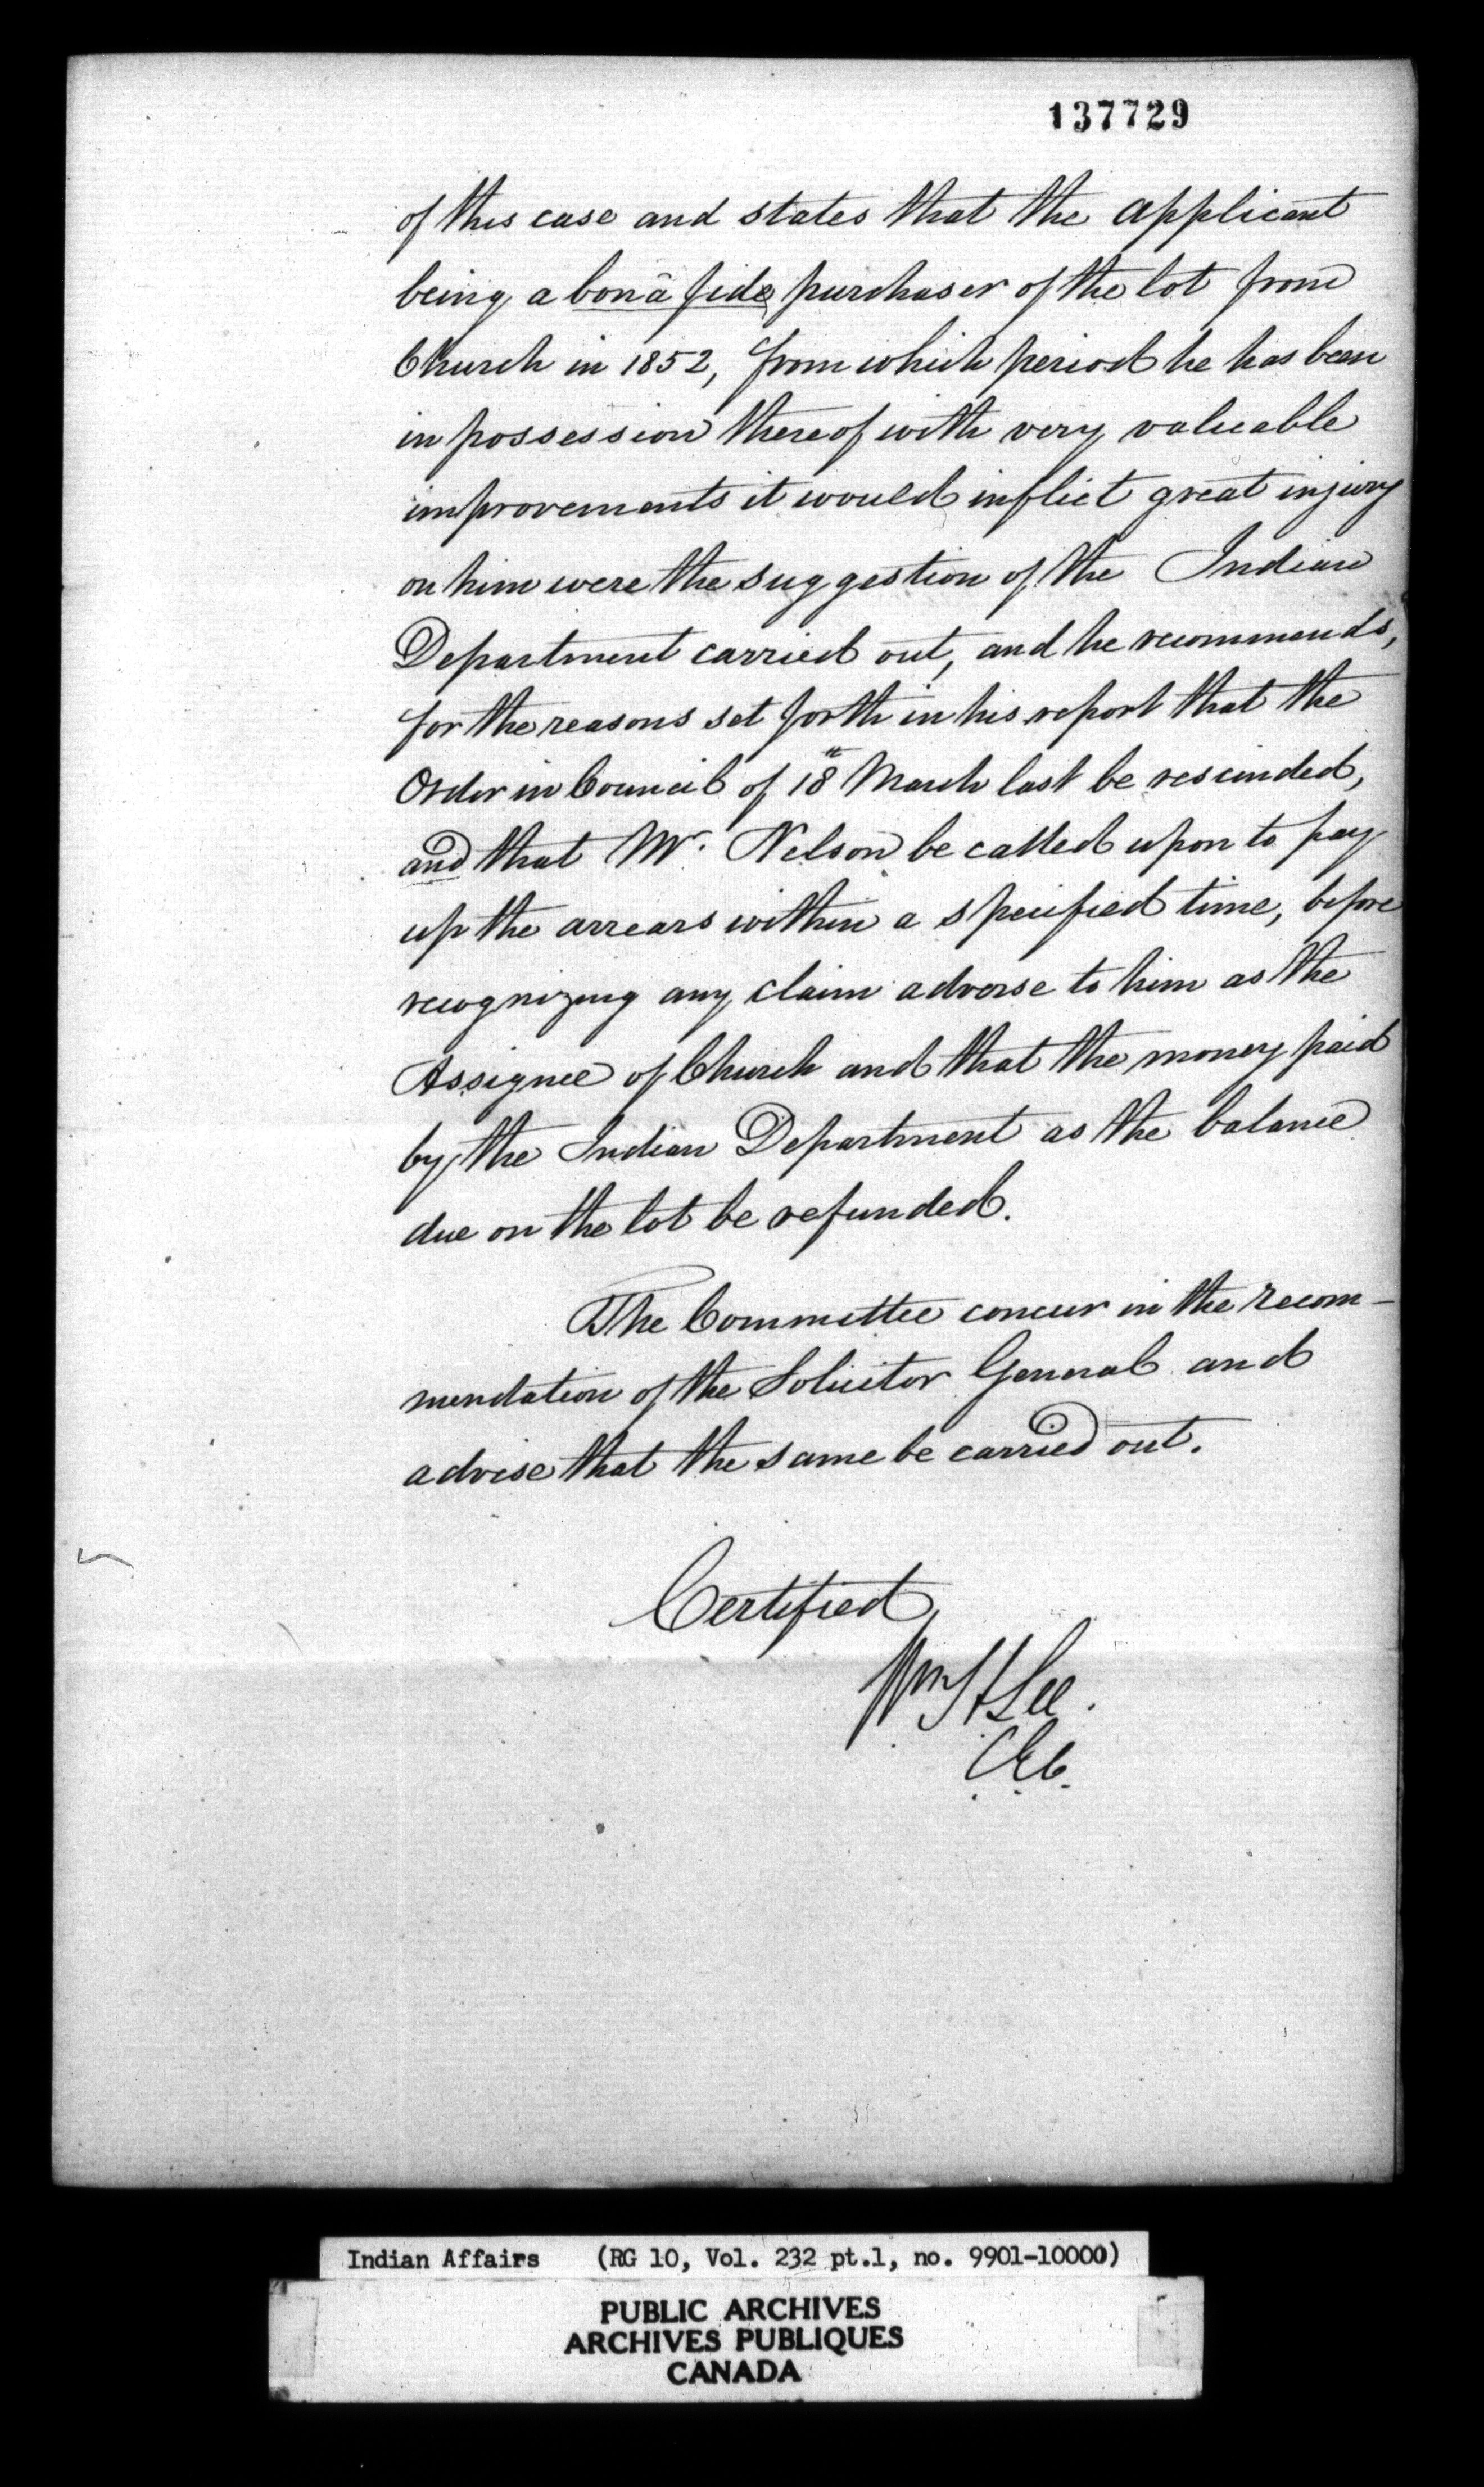 137729
of this case and states that the applicant
being a bonâ fide purchaser of the lot from
Church in 1852, from which period he has been
in possession thereof with very valuable
improvements it would inflict great injury
on him were the suggestion of the Indian
Department carried out, and he recommends,
for the reasons set forth in his report that the
Order in Council of 18th March last be rescinded,
and that Mr. Nelson be called upon to pay
up the arrears within a specified time, before
recognizing any claim adverse to him as the
Assignee of Church and that the money paid
by the Indian Department as the balance
due on the lot be refunded.
The Committee concur in the recom-
mendation of the Solicitor General and
advise that the same be carried out.
Certified
Wm H Lee.
C.E.C.
Indian Affairs (RG 10, Vol. 232 pt.1, no. 9901-10000)
PUBLIC ARCHIVES
ARCHIVES PUBLIQUES
CANADA